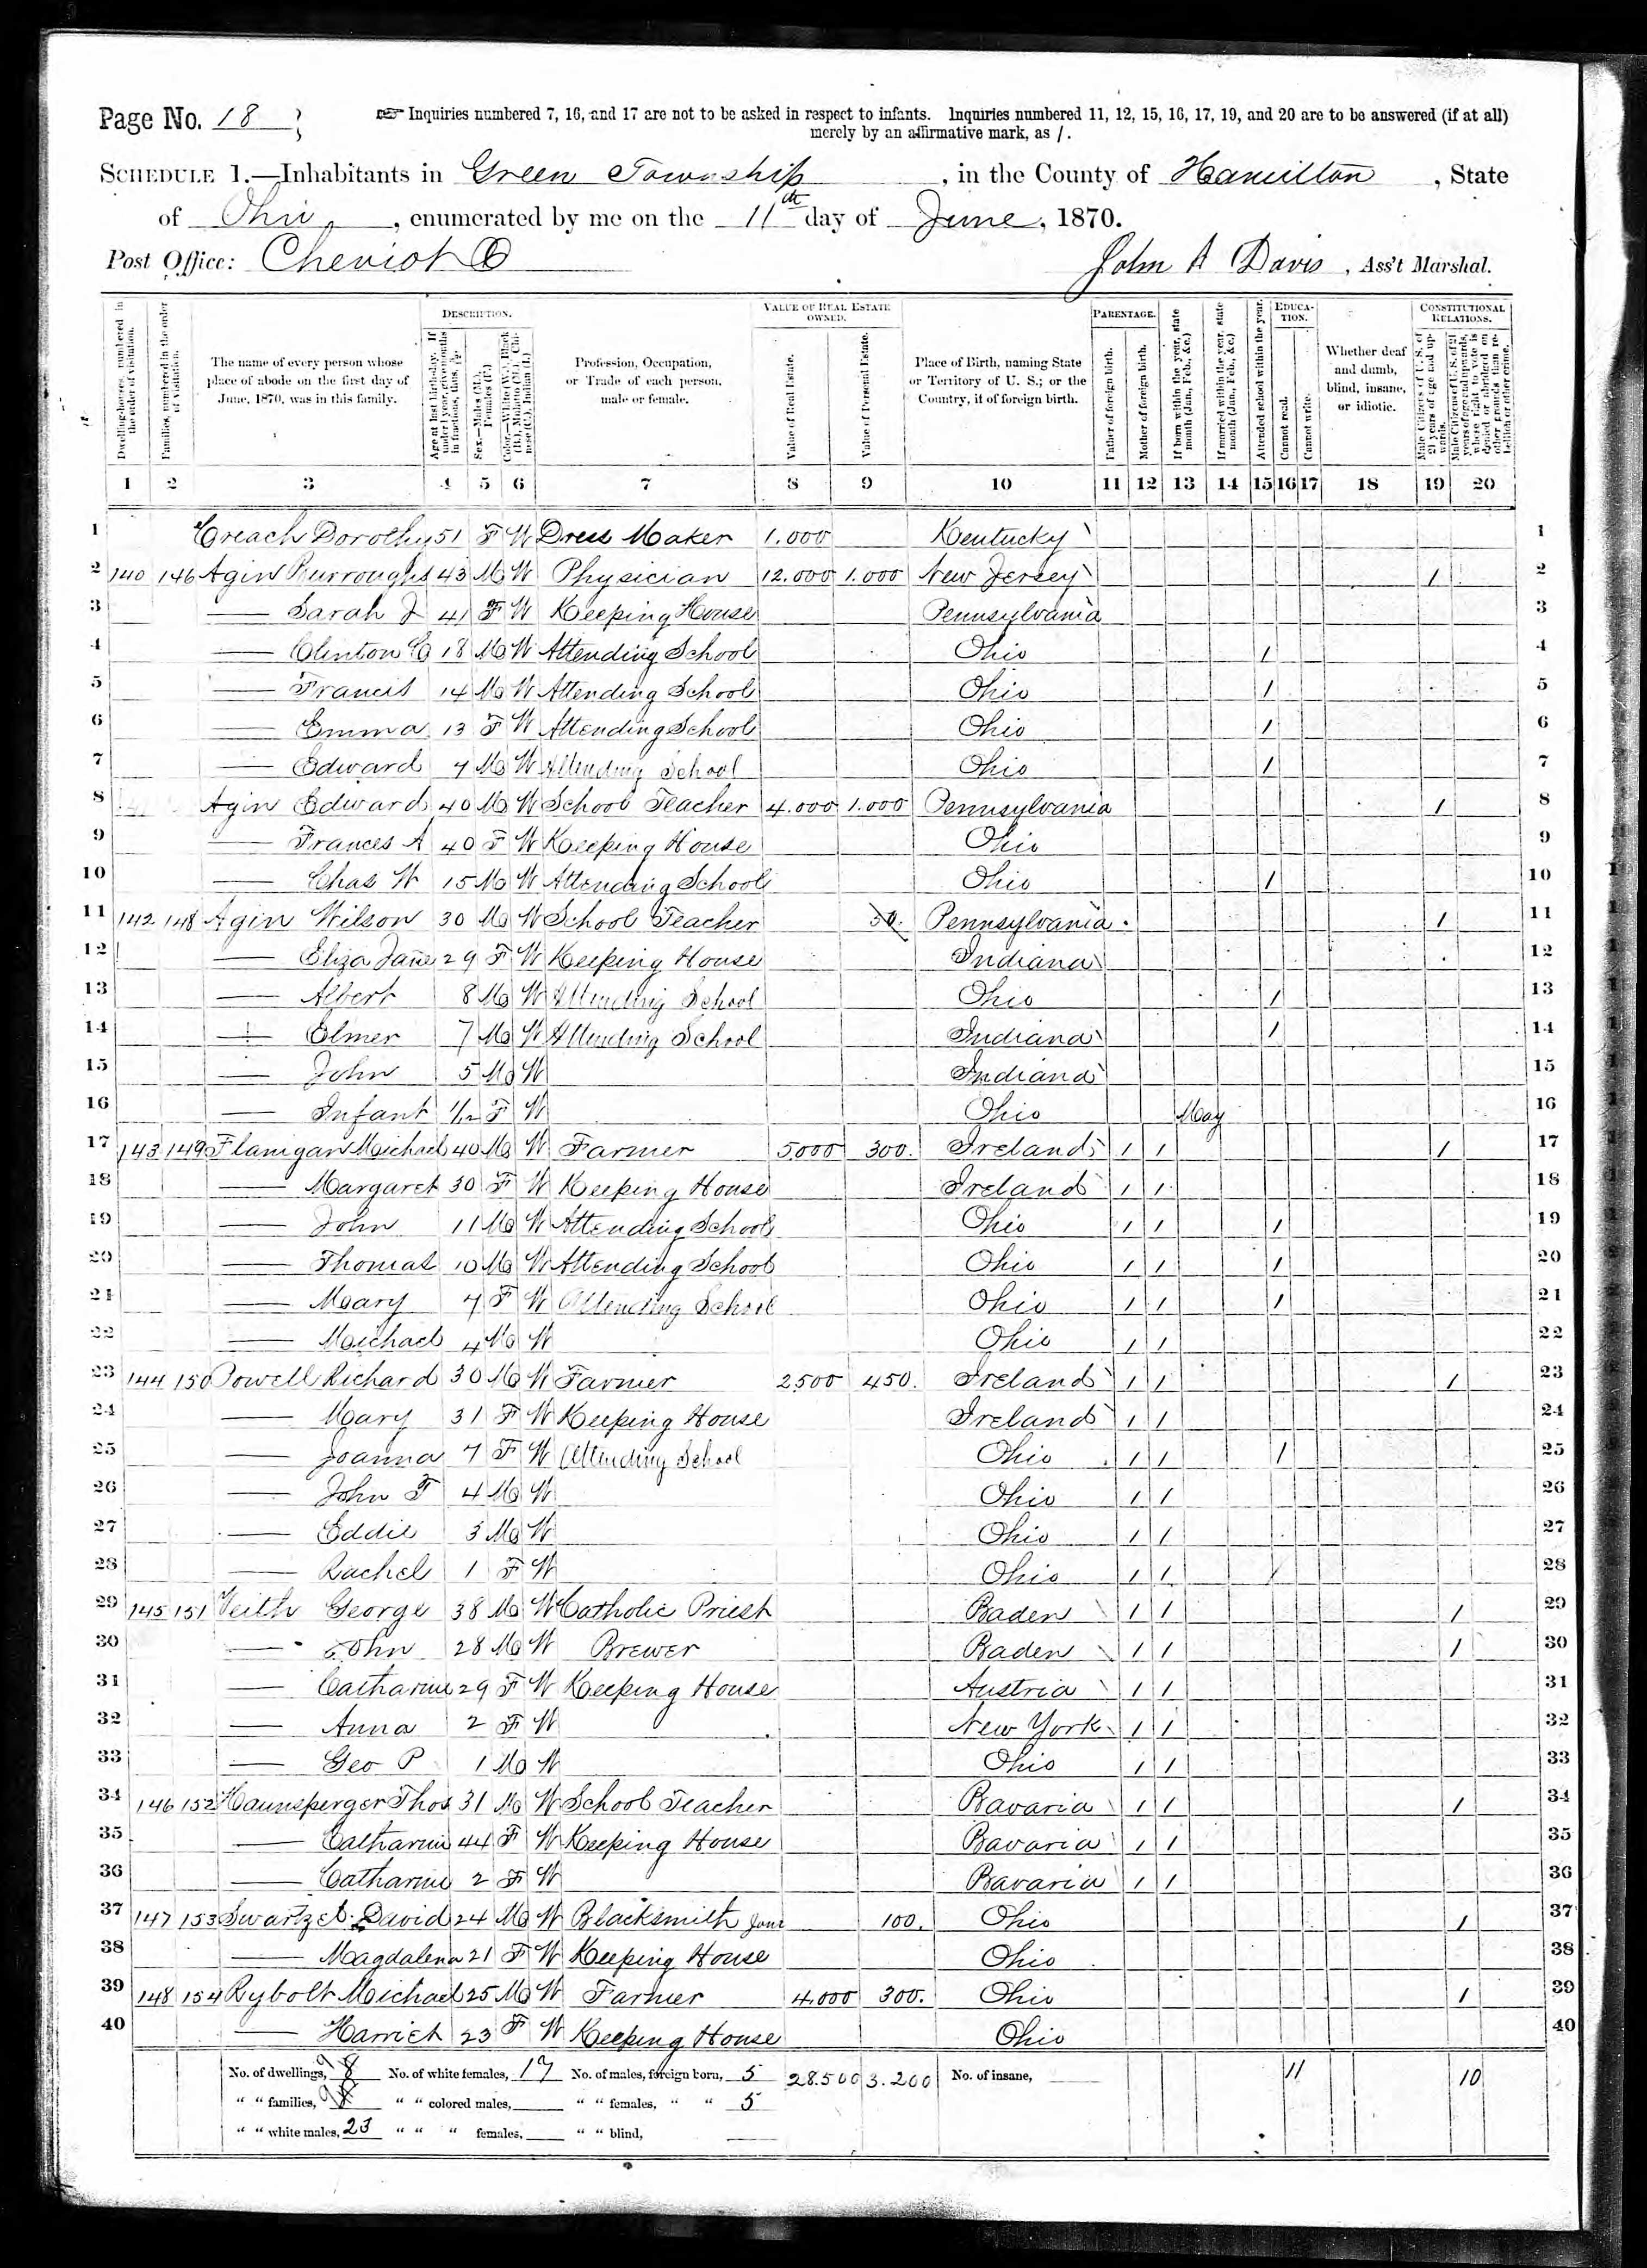 Page No. 18
Inquiries numbered 7, 16, and 17 are not to be asked in respect to infants. Inquiries numbered 11, 12, 15, 16, 17, 19, and 20 are to be answered (if at all)
merely by an affirmative mark, as /.
SCHEDULE 1.—Inhabitants in Green Township, in the County of Hamilton, State
of Ohio, enumerated by me on the 11th day of June, 1870.
Post Office: Cheviot O
John A Davis, Ass't Marshal.
DESCRIPTION. VALUE OF REAL ESTATE OWNED. PARENTAGE. EDUCATION. CONSTITUTIONAL RELATIONS.
Dwelling-houses, numbered in the order of visitation.
Families, numbered in the order of visitation.
The name of every person whose place of abode on the first day of June, 1870, was in this family.
Age at last birth-day. If under 1 year, give months in fractions, thus, 3/12.
Sex.—Males (M.), Females (F.)
Color.—White (W.), Black (B.), Mulatto (M.), Chinese (C.), Indian (I.)
Profession, Occupation, or Trade of each person, male or female.
Value of Real Estate.
Value of Personal Estate.
Place of Birth, naming State or Territory of U. S.; or the Country, if of foreign birth.
Father of foreign birth.
Mother of foreign birth.
If born within the year, state month (Jan., Feb., &c.)
If married within the year, state month (Jan., Feb., &c.)
Attended school within the year.
Cannot read.
Cannot write.
Whether deaf and dumb, blind, insane, or idiotic.
Male Citizens of U. S. of 21 years of age and upwards.
Male Citizens of U. S. of 21 years of age and upwards, where right to vote is denied or abridged on other grounds than rebellion or other crime.
1 2 3 4 5 6 7 8 9 10 11 12 13 14 15 16 17 18 19 20
1 Creach Dorothy 51 F W Dress Maker 1.000 Kentucky 1
2 140 146 Agin Burroughs 43 M W Physician 12.000 1.000 New Jersey / 2
3 — Sarah J 41 F W Keeping House Pennsylvania 3
4 — Clinton C 18 M W Attending School Ohio / 4
5 — Francis 14 M W Attending School Ohio / 5
6 — Emma 13 F W Attending School Ohio / 6
7 — Edward 7 M W Attending School Ohio / 7
8 Agin Edward 40 M W School Teacher 4.000 1.000 Pennsylvania / 8
9 — Frances A 40 F W Keeping House Ohio 9
10 — Chas W 15 M W Attending School Ohio / 10
11 142 148 Agin Wilson 30 M W School Teacher 50. Pennsylvania / 11
12 — Eliza Jane 29 F W Keeping House Indiana 12
13 — Albert 8 M W Attending School Ohio / 13
14 — Elmer 7 M W Attending School Indiana / 14
15 — John 5 M W Indiana 15
16 — Infant 1/12 F W Ohio May 16
17 143 149 Flanigan Michael 40 M W Farmer 5000 300. Ireland / / / 17
18 — Margaret 30 F W Keeping House Ireland / / 18
19 — John 11 M W Attending School Ohio / / / 19
20 — Thomas 10 M W Attending School Ohio / / / 20
21 — Mary 7 F W Attending School Ohio / / / 21
22 — Michael 4 M W Ohio / / 22
23 144 150 Powell Richard 30 M W Farmer 2500 450. Ireland / / / 23
24 — Mary 31 F W Keeping House Ireland / / 24
25 — Joanna 7 F W Attending School Ohio / / / 25
26 — John F 4 M W Ohio / / 26
27 — Eddie 3 M W Ohio / / 27
28 — Rachel 1 F W Ohio / / 28
29 145 151 Veith George 38 M W Catholic Priest Baden / / / 29
30 — John 28 M W Brewer Baden / / / 30
31 — Catharine 29 F W Keeping House Austria / / 31
32 — Anna 2 F W New York / / 32
33 — Geo P 1 M W Ohio / / 33
34 146 152 Haunsperger Thos 31 M W School Teacher Bavaria / / / 34
35 — Catharine 44 F W Keeping House Bavaria / / 35
36 — Catharine 2 F W Bavaria / / 36
37 147 153 Swartzel David 24 M W Blacksmith 100. Ohio / 37
38 — Magdalena 21 F W Keeping House Ohio 38
39 148 154 Rybolt Michael 25 M W Farmer 4.000 300. Ohio / 39
40 — Harriet 23 F W Keeping House Ohio 40
No. of dwellings, 9 8 No. of white females, 17 No. of males, foreign born, 5 28.500 3.200 No. of insane, 11 10
" " families, 9 " " colored males, " " females, " " 5
" " white males, 23 " " " females, " " blind,